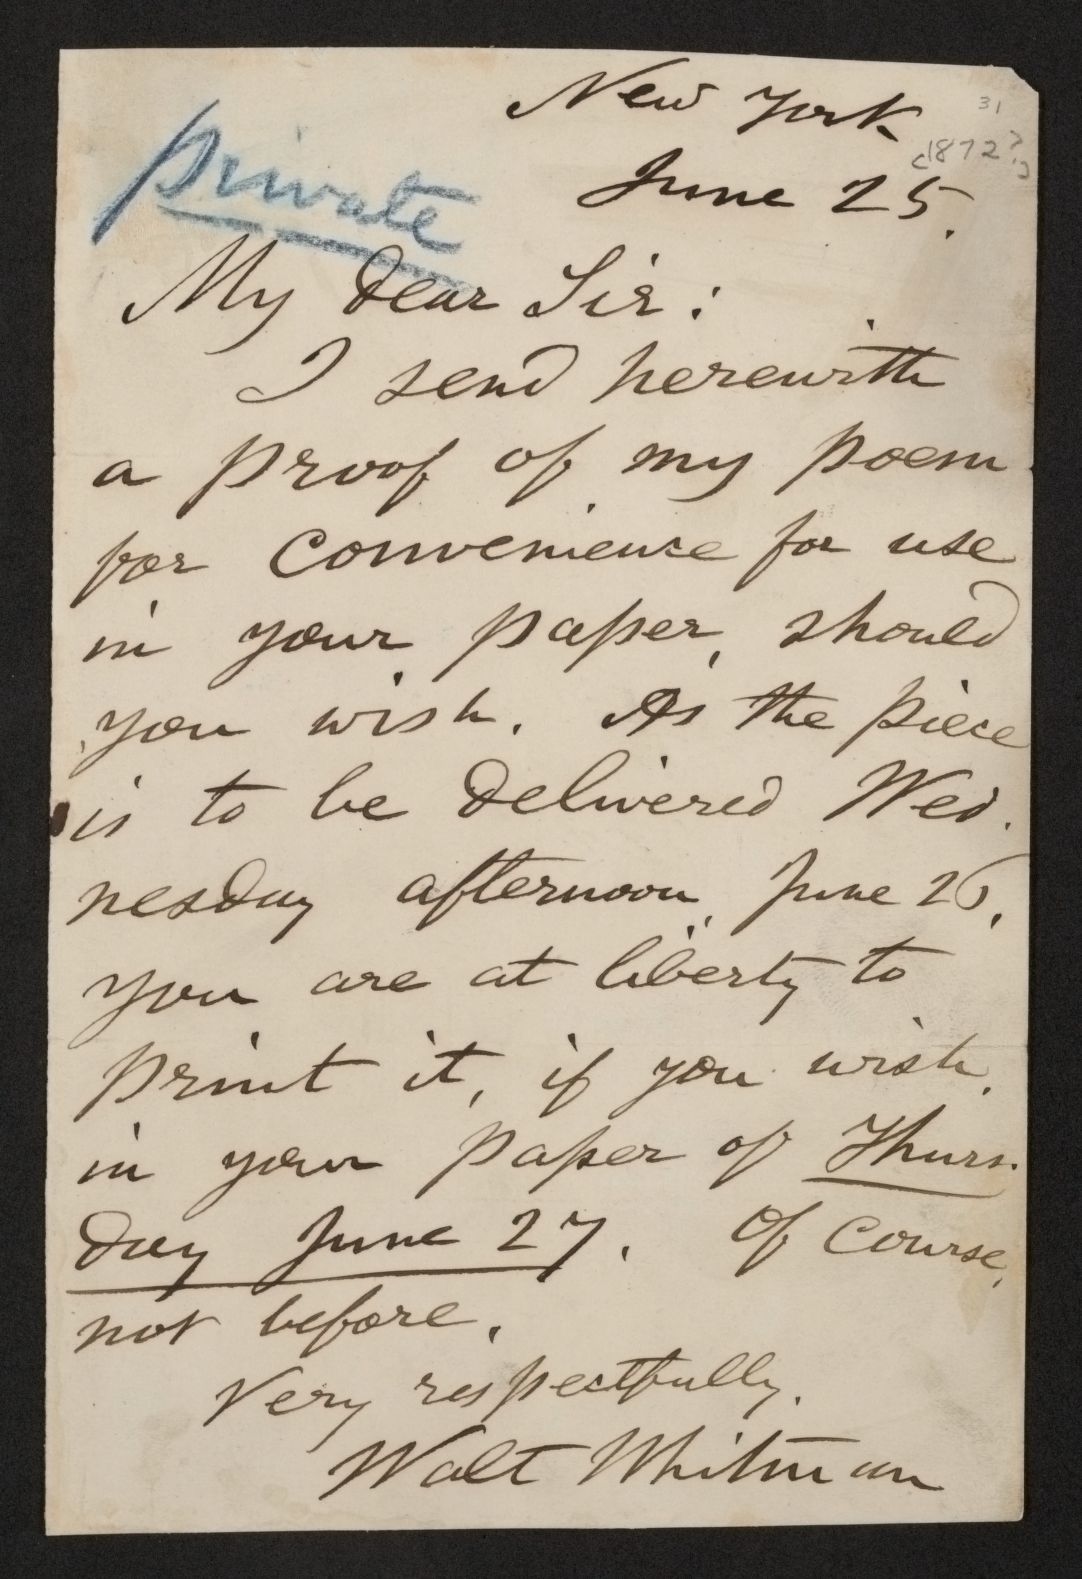 New York
31
[1872?]
June 25.
private
My dear Sir:
I send herewith
a proof of my poem
for convenience for use
in your paper, should
you wish. As the piece
is to be delivered Wed-
nesday afternoon, June 26,
you are at liberty to
print it, if you wish,
in your paper of Thurs-
day June 27. Of course,
not before.
Very respectfully,
Walt Whitman